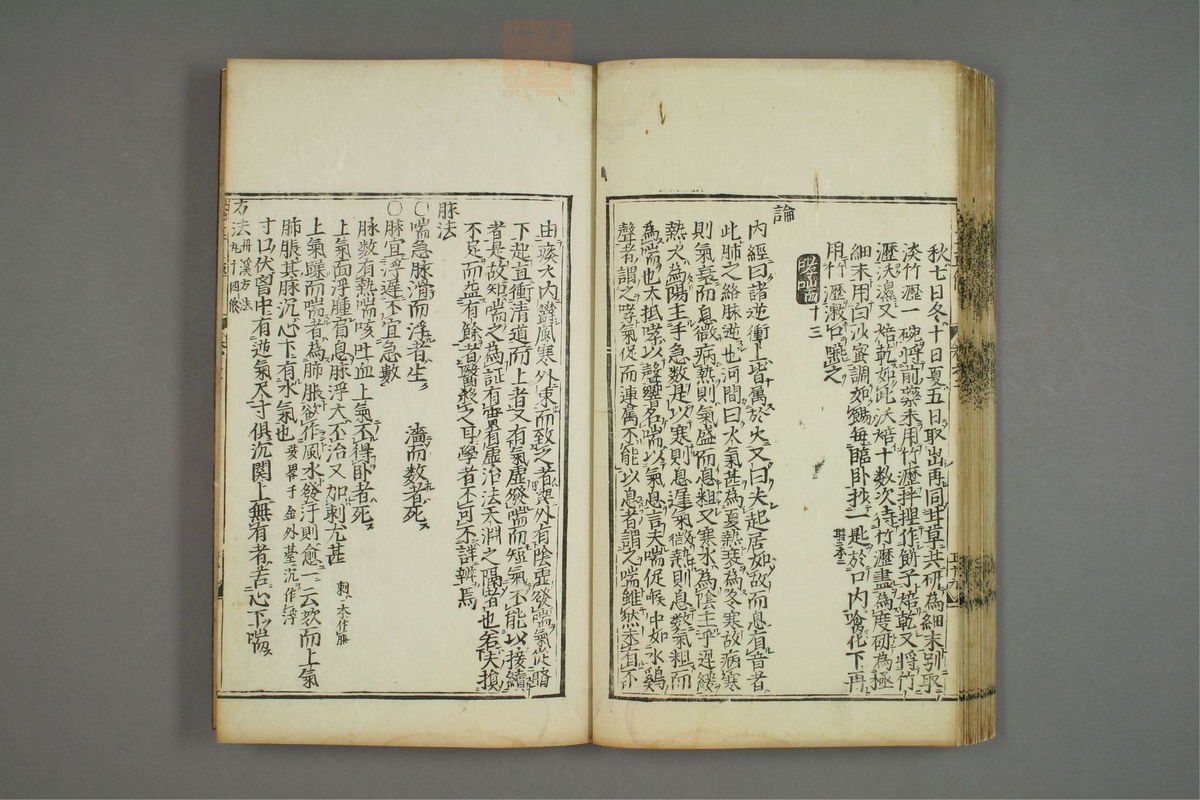 秋七日冬十日夏五日取出再同甘草共研為細末別取
淡竹瀝一碗將前藥末用竹瀝拌捏作餅子焙乾又將竹
瀝沃濕又焙乾如此沃焙十數次待竹瀝盡為度研為極
細末用白沙蜜調如餳每臨卧抄一匙於口內噙化下再
用竹瀝漱口嚥之
哮喘十三
論
內經曰諸逆衝上皆属於火又曰夫起居如故而息有音者
此肺之絡脉逆也河間曰火氣甚為夏熱衰為冬寒故病寒
則氣衰而息微病熱則氣盛而息粗又寒水為陰主乎遲緩
熱火為陽主乎急數是以寒則息遲氣微熱則息數氣粗而
為喘也大抵哮以聲響名喘以氣息言夫喘促喉中如水鷄
聲者謂之哮氣促而連属不能以息者謂之喘雖然未有不
由痰火內鬱風寒外束而致之者與外有陰虛發喘氣從臍
下起直衝清道而上者又有氣虛發喘而短氣不能以接續
者是故知喘之為証有實有虛治法天淵之隔者也若夫損
不足而益有餘者醫殺之耳學者不可不詳辨焉
脉法
〇喘急脉滑而浮者生 濇而數者死
〇脉宜浮遲不宜急數
脉數有熱喘咳吐血上氣不得卧者死
上氣面浮腫肩息脉浮大不治又加利尤甚
上氣喘而躁者為肺脹欲作風水發汗則愈一云欬而上氣
肺脹其脉沉心下有水氣也
寸口伏胷中有逆氣尺寸俱沉関上無有者苦心下喘
方法丹溪方法